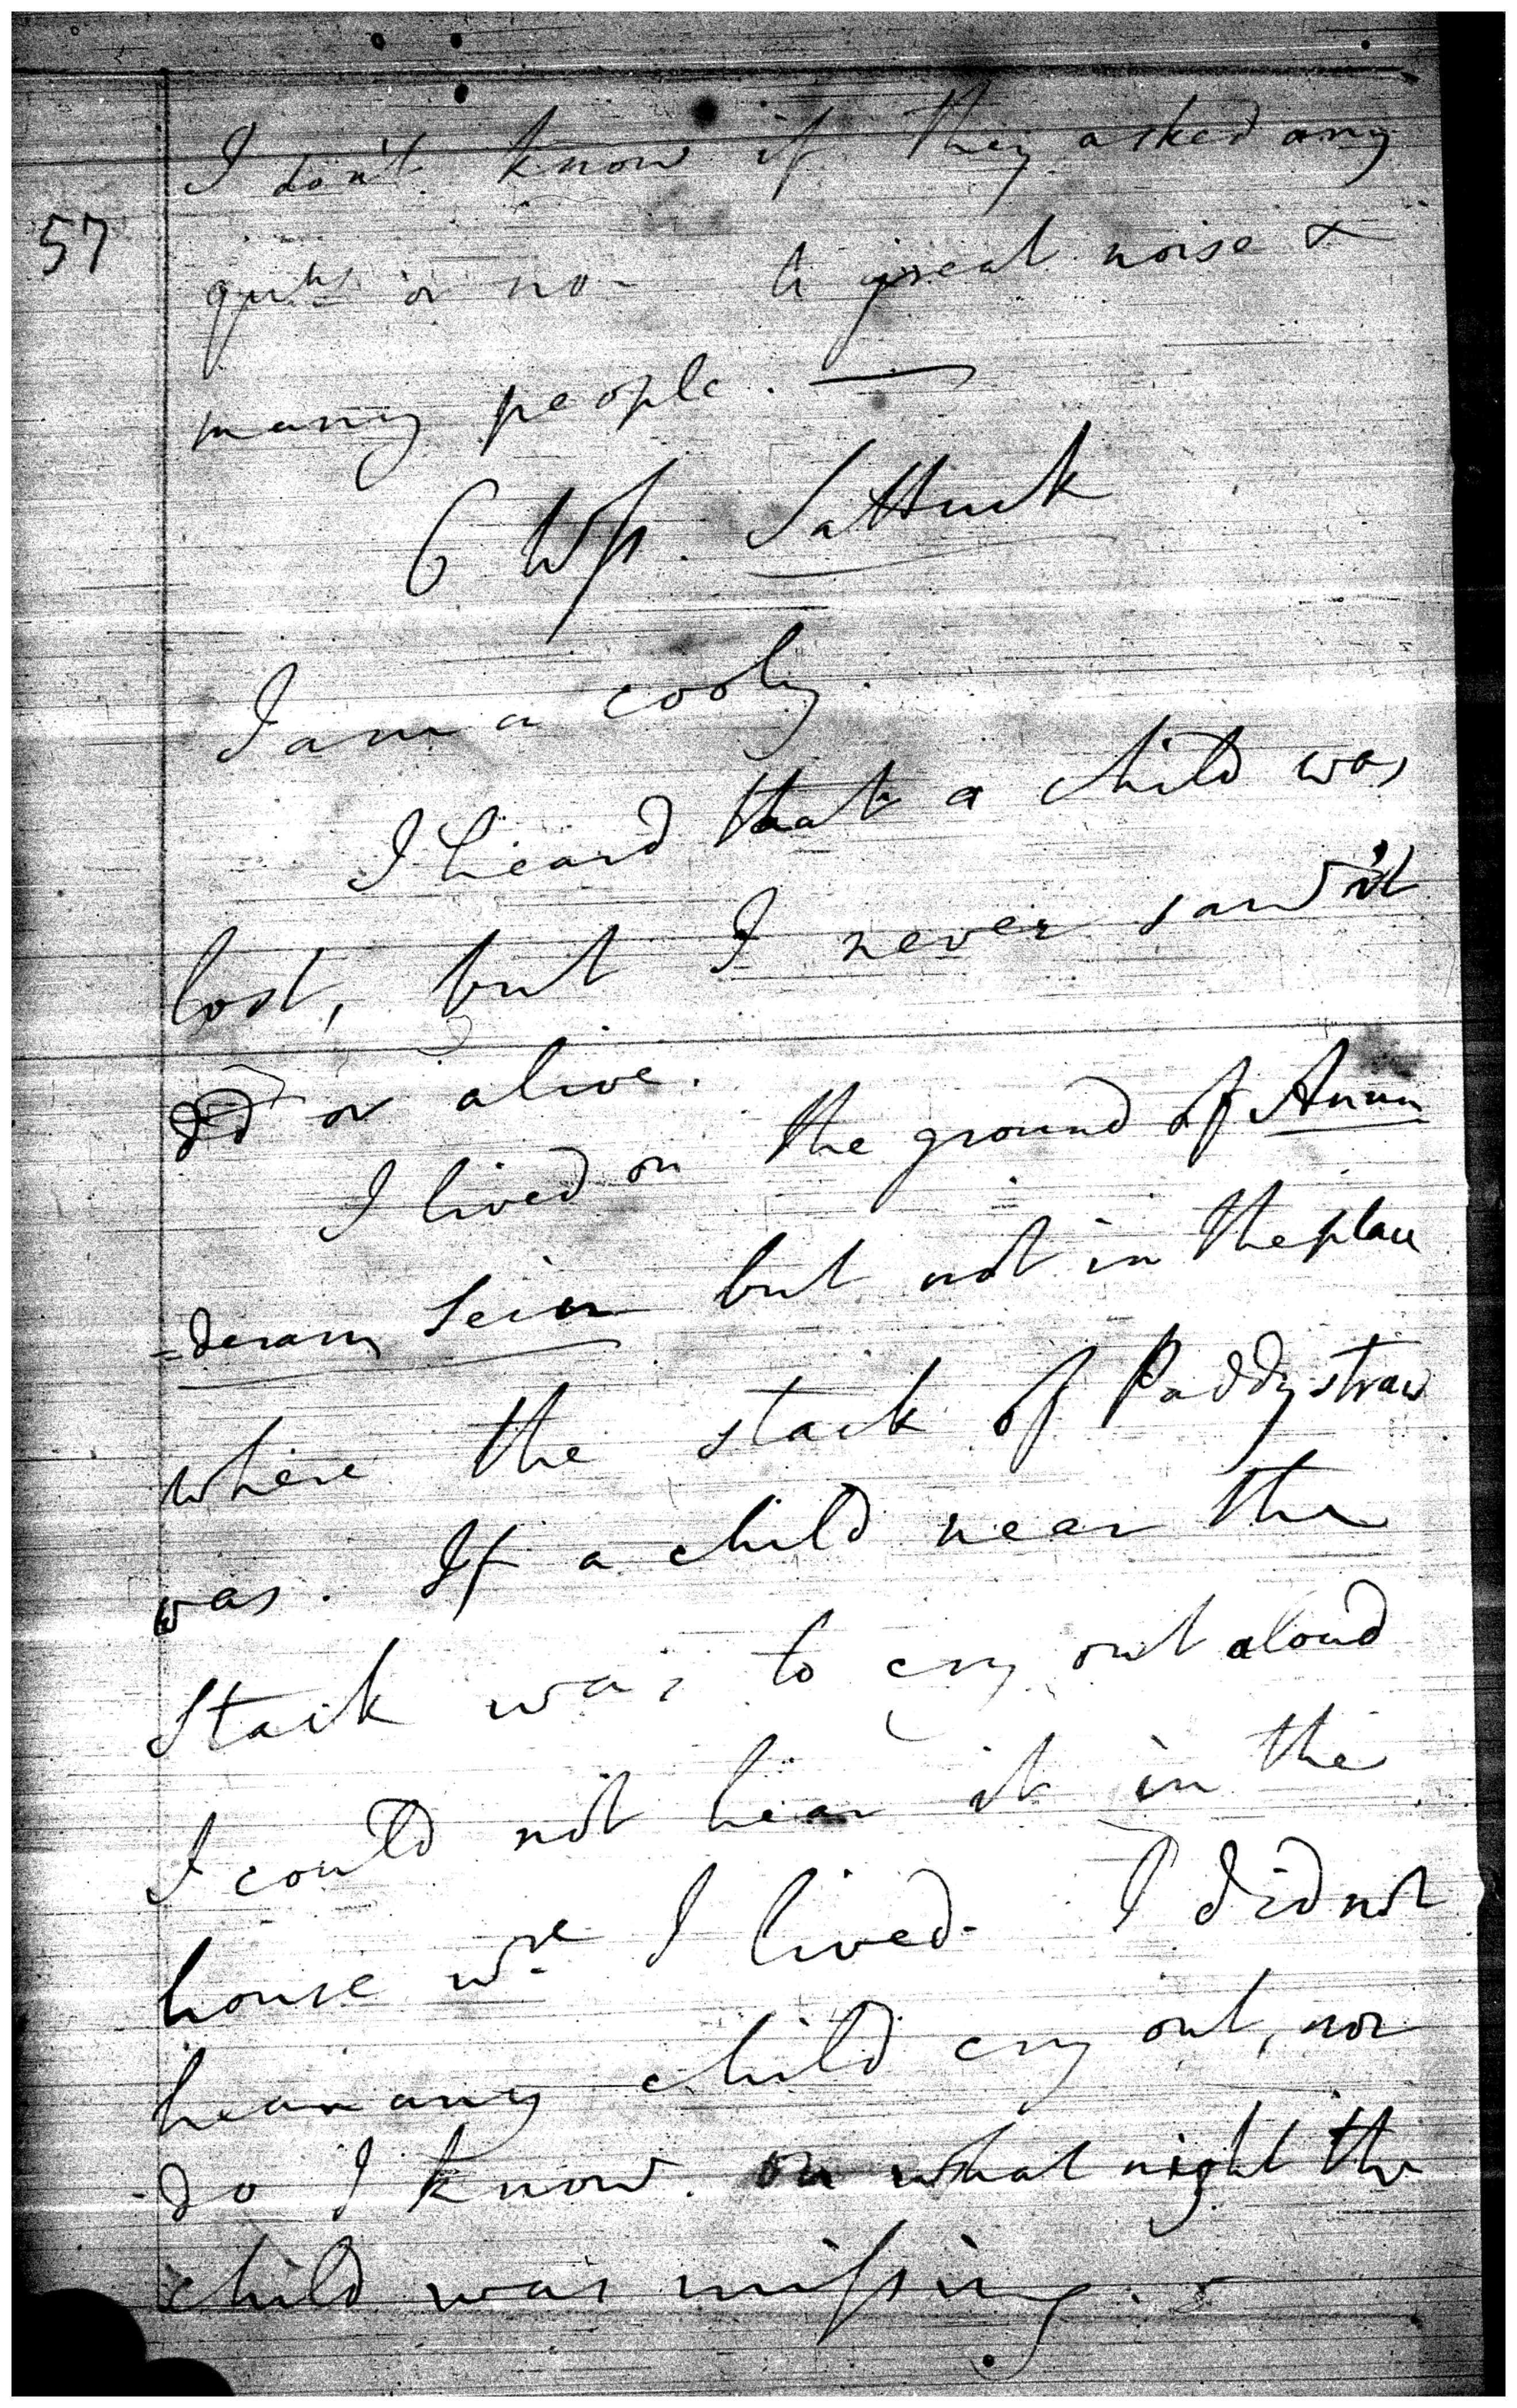 I don't know if they asked any
57
qu<sup>ns</sup> or no - A great noise &
many people. —
6 Wss. Sattuck
I am a cooly.
I heard that a child was
lost, but I never saw it
ded or alive.
I lived on the ground of Anun
=deram Sein but not in the place
where the stack of Paddy straw
was. If a child near the
Stack was to cry out aloud
I could not hear it in the
house w<sup>re</sup> I lived - I did not
hear any child cry out, nor
do I know. on what night the
child was missing.